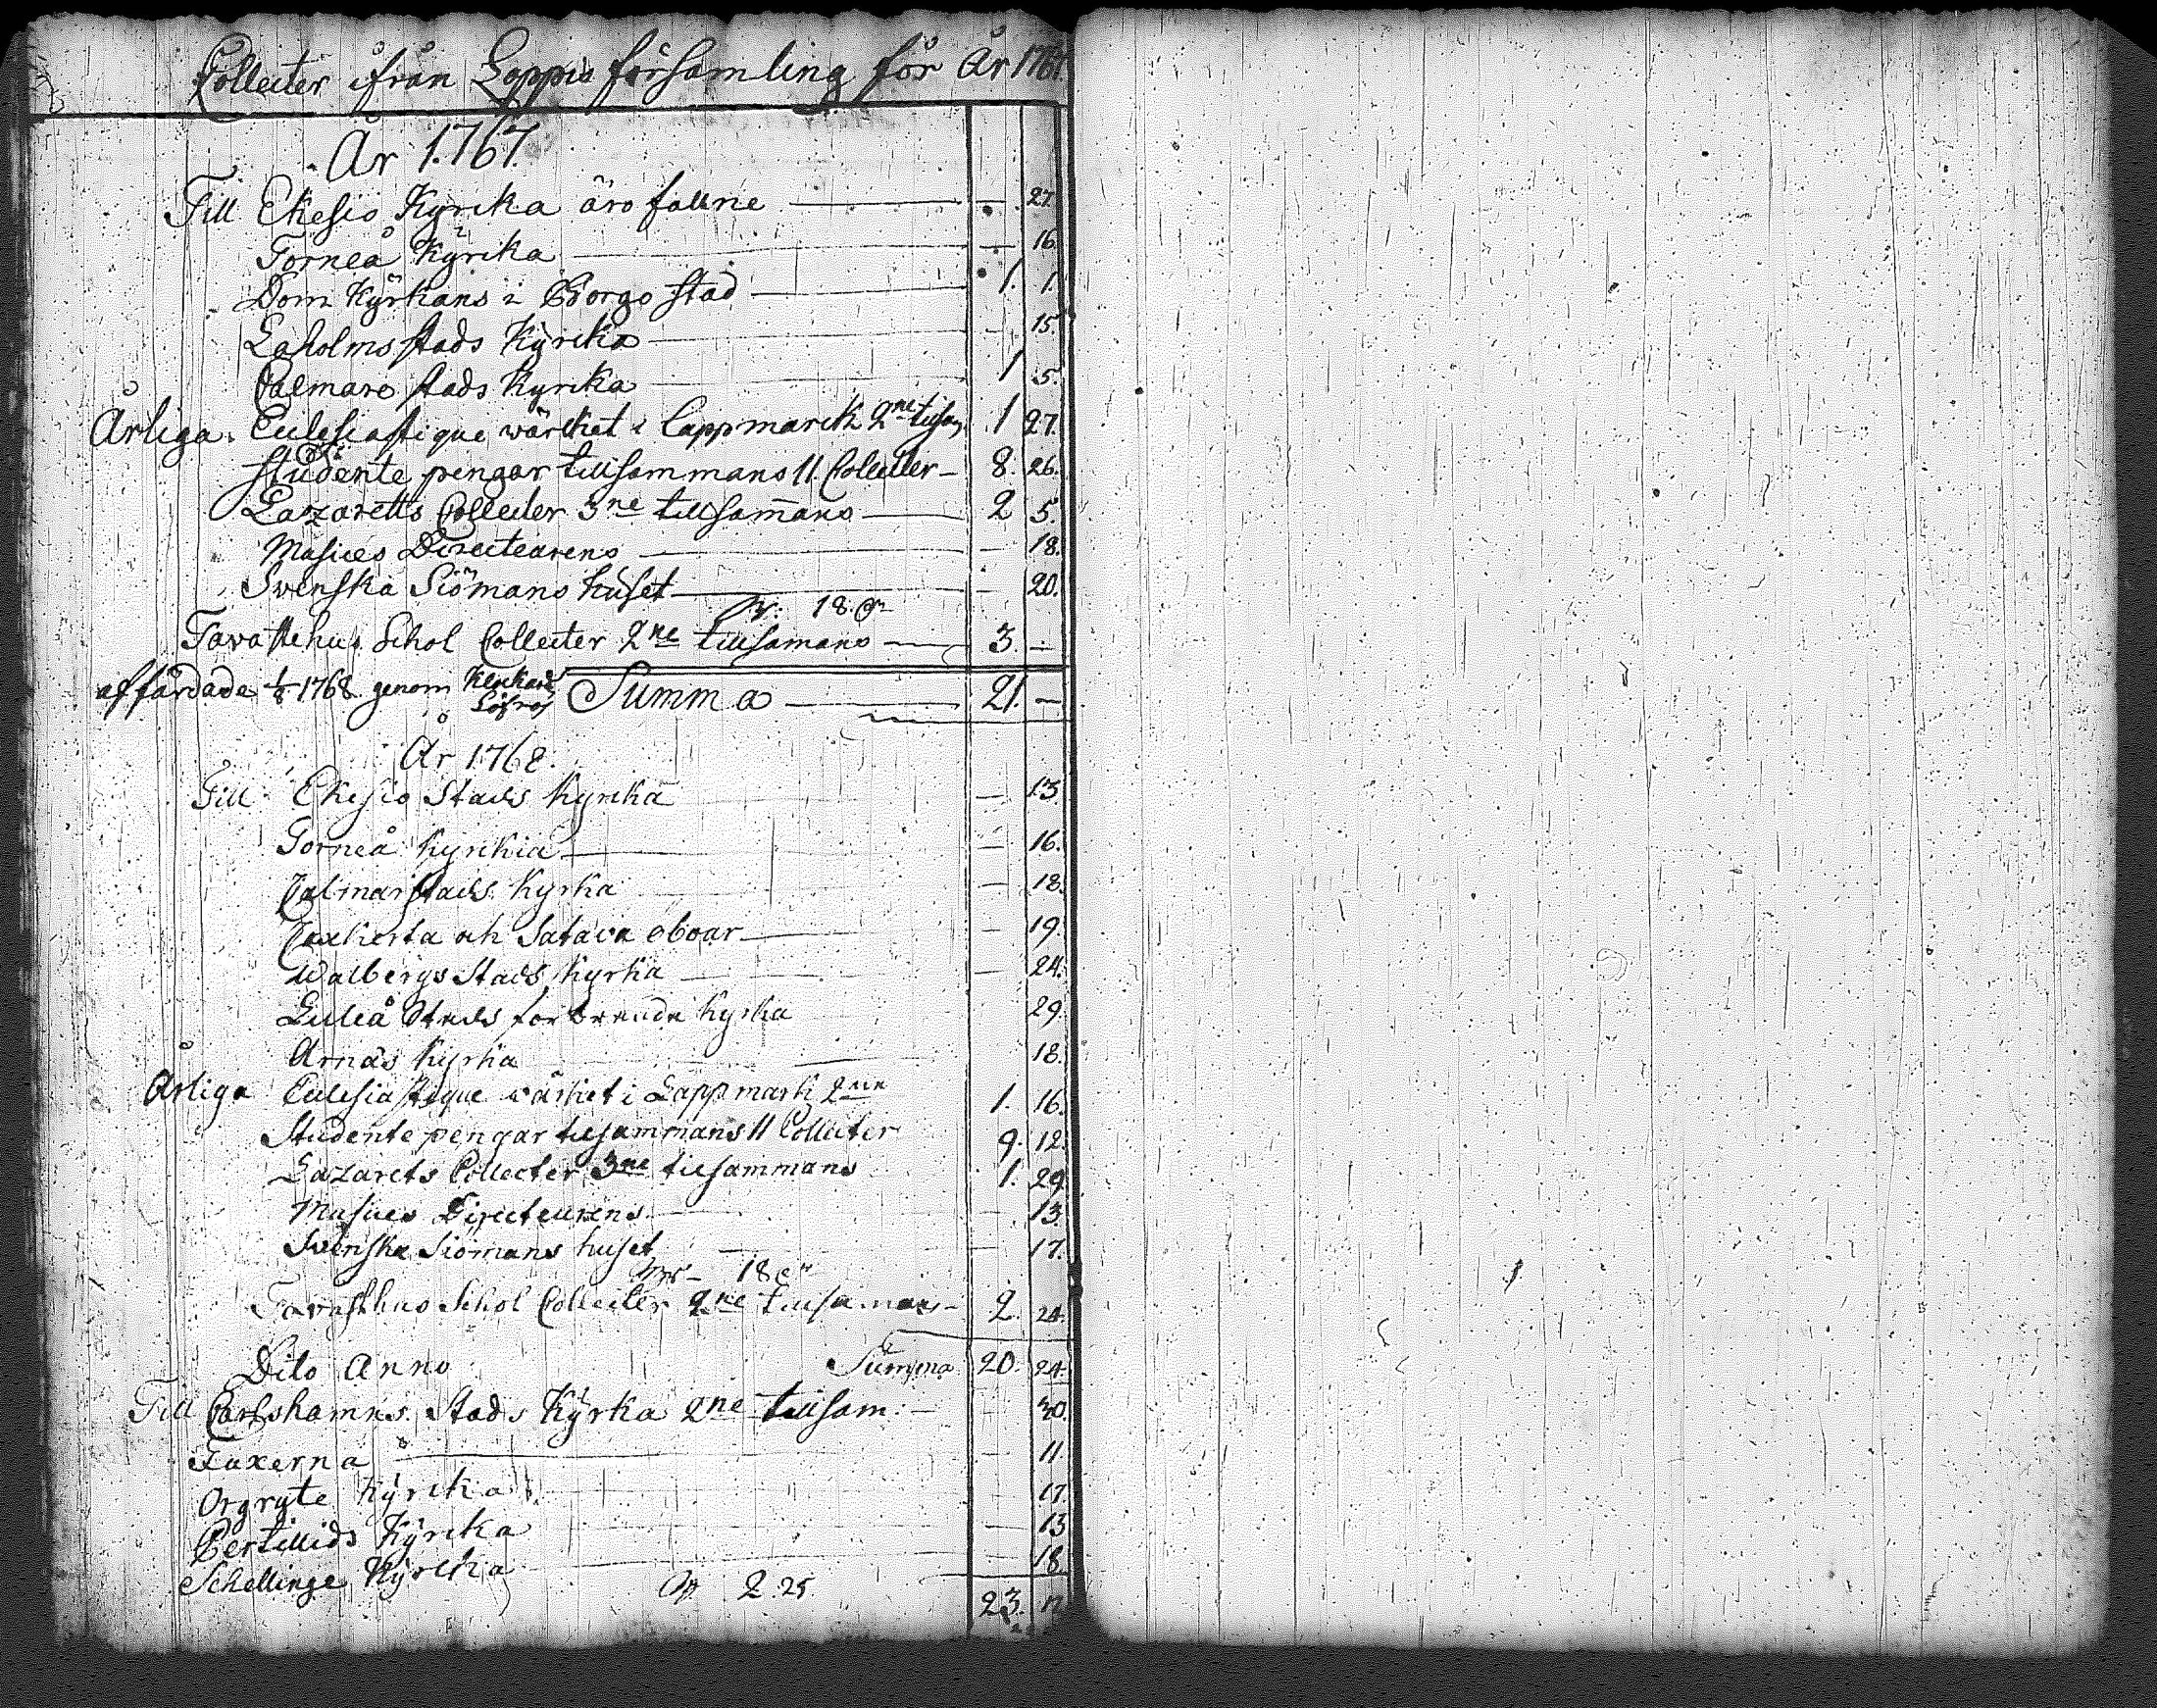 Collecter ifrån Loppis församling för År 1767.
År 1.767.
Till Ekesio Kyrcka äro fallne — 27.
Torneå Kyrcka — 16.
Dom Kyrkans i Borgo stad 1. 1.
Laholms stads Kyrcka — 15.
Calmare stads Kyrcka 1 5.
Årliga. Ecclesiastique wärcket i Lappmarck 2ne tillsam 1 27.
studente pengar tillsammans 11. Collecter 8. 26.
Lazaretts Collecter 3ne tillsam̄ans 2 5.
Musices Directeurens — 18.
Svenska Siömans huset — 20.
18. ör
Tavastehus Schol Collecter 2ne tillsamans 3. —
affärdade 1/8 1768 genom Klockare Summa 21. —
År 1768.
Till Ekesio Stads Kyrcka — 13.
Torneå Kyrckia — 16.
Calmar stads Kyrka — 18.
Kaxkerta och Satava öboar — 19.
Walbergs Stads Kyrka — 24.
Luleå Stads förbrenda Kyrka 29.
Arnäs Kyrka 18.
Årliga Ecclesiastique wärket i Lappmark 2ne 1. 16.
Studente pengar tillsammans 11 Collecter 9. 12.
Lazarets Collecter 3ne tillsammans 1. 29.
Musices Directeurens — 13.
Svenska Siömans huset — 17.
18 ör
Tavasthus Schol Collecter 2ne tillsamans 2. 24.
Dito Anno Summa 20. 24.
Till Carlshamns Stads Kyrka 2ne tillsam: — 30.
Fuxerna — 11.
Orgryte Kyrcka — 17.
Pertillids Kyrcka — 13
Schellinge Kyrcka — 18.
2. 25 23. 17